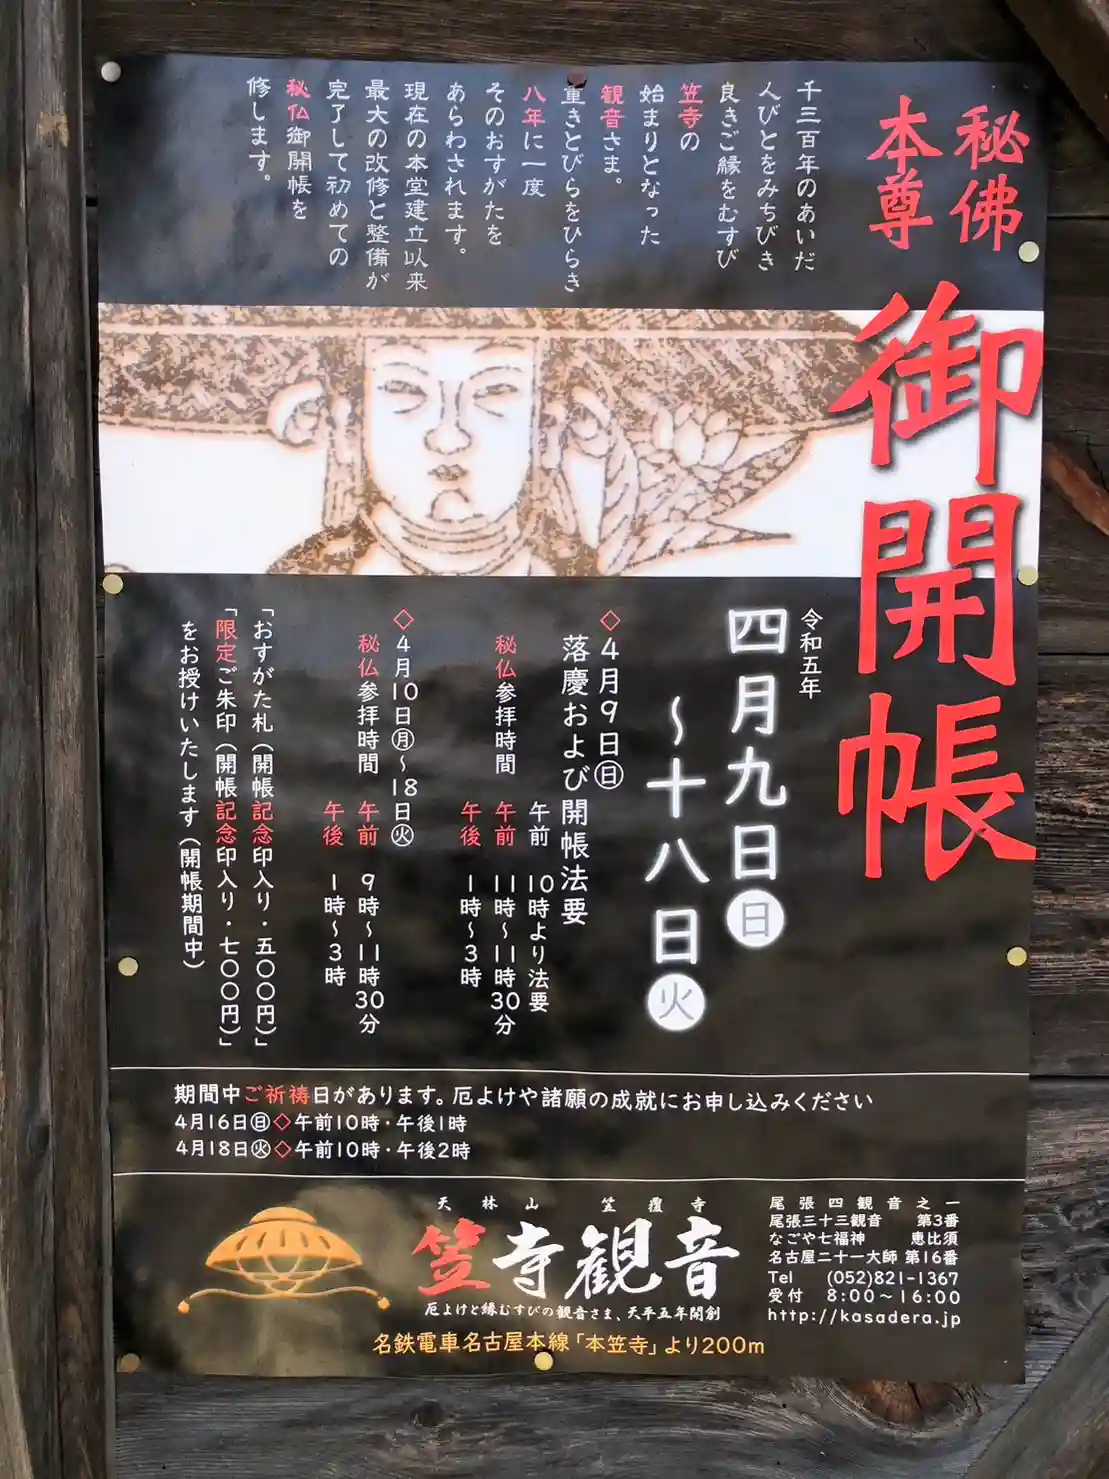 秘佛
本尊
御開帳
千三百年のあいだ
人びとをみちびき
良きご縁をむすび
笠寺の
始まりとなった
観音さま。
重きとびらをひらき
八年に一度
そのおすがたを
あらわされます。
現在の本堂建立以来
最大の改修と整備が
完了して初めての
秘仏御開帳を
修します。
令和五年
四月九日㊐
～十八日㊋
◇4月9日㊐
落慶および開帳法要
午前 10時より法要
秘仏参拝時間 午前 11時～11時30分
午後 1時～3時
◇4月10日㊊～18日㊋
秘仏参拝時間 午前 9時～11時30分
午後 1時～3時
「おすがた札（開帳記念印入り・五〇〇円）」
「限定ご朱印（開帳記念印入り・七〇〇円）」
をお授けいたします（開帳期間中）
期間中ご祈祷日があります。厄よけや諸願の成就にお申し込みください
4月16日㊐◇午前10時・午後1時
4月18日㊋◇午前10時・午後2時
天林山 笠覆寺
笠寺観音
厄よけと縁むすびの観音さま、天平五年開創
名鉄電車名古屋本線「本笠寺」より200m
尾張四観音之一
尾張三十三観音 第3番
なごや七福神 恵比須
名古屋二十一大師 第16番
Tel (052)821-1367
受付 8:00～16:00
http://kasadera.jp